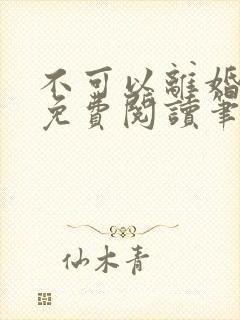 不可以離婚
免費閱讀筆
仙木青